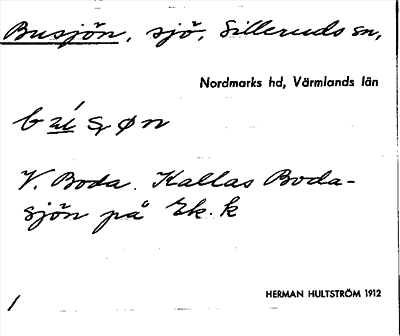 Busjön, sjö, Silleruds sn,
Nordmarks hd, Värmlands län
V. Boda. Kallas Boda-
sjön på Ek. k
HERMAN HULTSTRÖM 1912
1